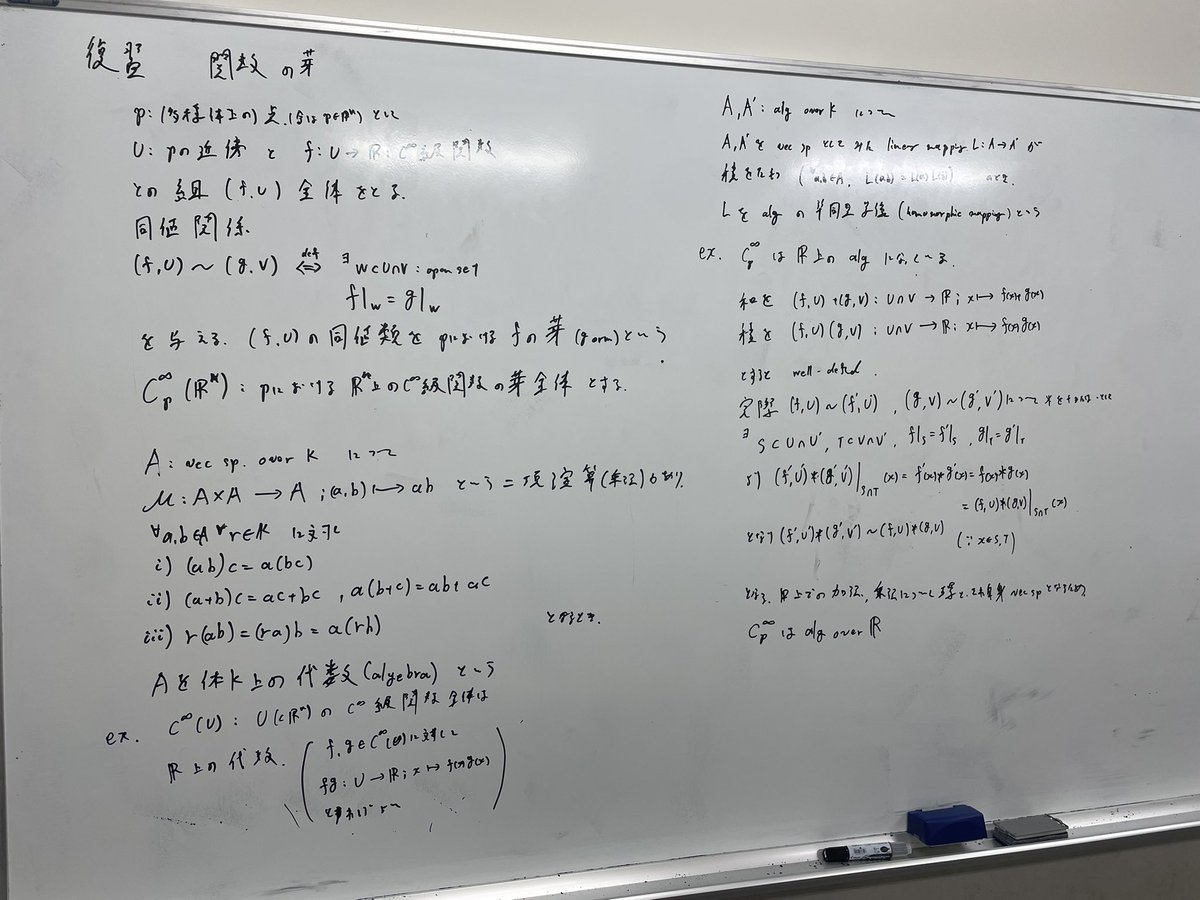 復習 関数の芽
p: (多様体上の) 点. (今は p∈ℝⁿ) として
U: pの近傍 と f: U→ℝ: C^∞級関数
との組 (f,U) 全体をとる.
同値関係
(f,U) ~ (g,V) ⇔(def) ∃W⊂U∩V: open set
f|_W = g|_W
を与える. (f,U)の同値類を pにおける fの芽 (germ) という
C_p^∞(ℝⁿ): pにおける ℝⁿ上のC^∞級関数の芽全体 とする.
A: vec sp. over K について
μ: A×A → A ; (a,b) ↦ ab という二項演算(乗法)があり
∀a,b∈A ∀r∈K に対して
i) (ab)c = a(bc)
ii) (a+b)c = ac+bc , a(b+c) = ab+ac
iii) r(ab) = (ra)b = a(rb)
となるとき.
Aを体K上の代数 (algebra) という
ex. C^∞(U): U(⊂ℝⁿ)の C^∞級関数全体は
ℝ上の代数.
f,g∈C^∞(U)に対して
fg: U→ℝ; x↦f(x)g(x)
とすればよい
A,A': alg over K について
A,A'を vec sp として みた linear mapping L: A→A' が
積をたもつ (∀a,b∈A, L(ab) = L(a)L(b)) のとき
Lを alg の準同型写像 (homomorphic mapping) という
ex. C_p^∞ は ℝ上の alg になっている.
和を (f,U)+(g,V): U∩V→ℝ; x↦f(x)+g(x)
積を (f,U)(g,V): U∩V→ℝ; x↦f(x)g(x)
とすると well-defined.
実際 (f,U)~(f',U'), (g,V)~(g',V')について *を
∃S⊂U∩U', T⊂V∩V', f|_S=f'|_S, g|_T=g'|_T
より (f',U')*(g',V')|_{S∩T}(x) = f'(x)*g'(x) = f(x)*g(x)
= (f,U)*(g,V)|_{S∩T}(x)
となり (f',U')*(g',V')~(f,U)*(g,V) (∵ x∈S,T)
となる. ℝ上での加法, 乗法について環で, vec sp となるため
C_p^∞ は alg over ℝ